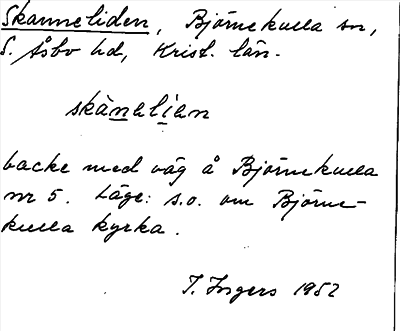 Skanneliden, Björnekulla sn,
S. Åsbo hd, Krist. län.
skànalían
backe med väg å Björnekulla
nr 5. Läge: s.o. om Björne-
kulla kyrka.
I. Ingers 1952